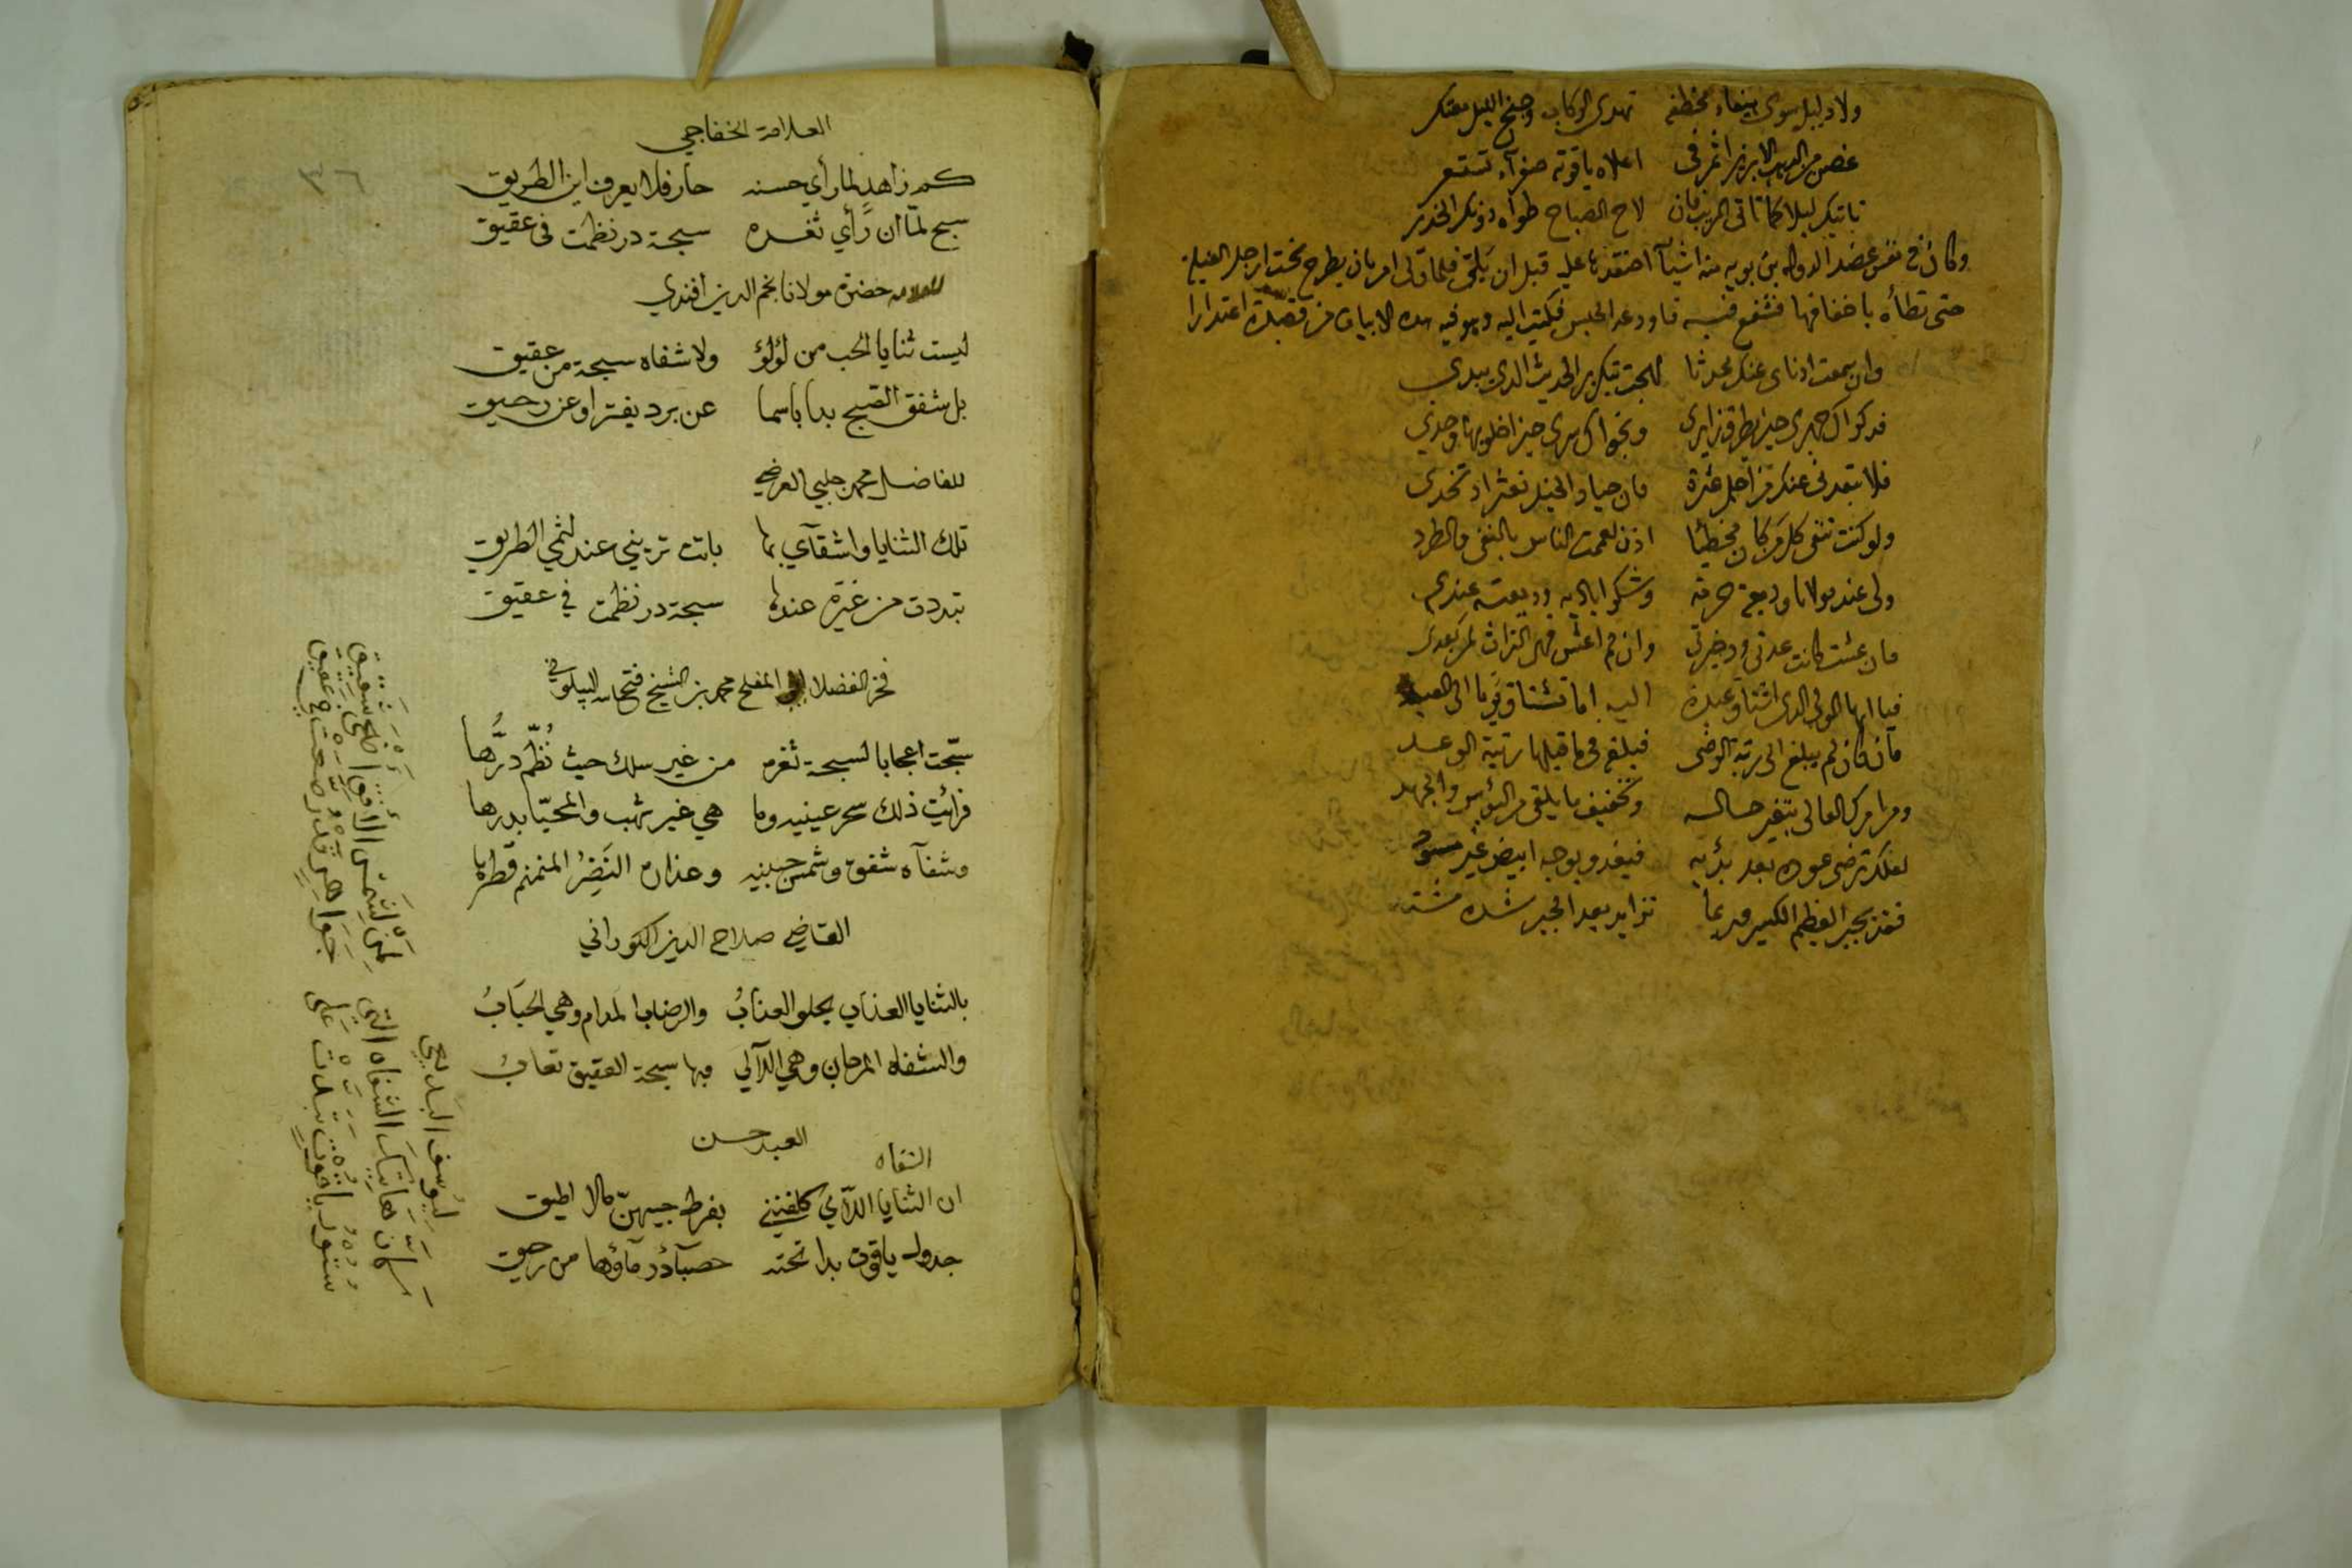 ولا دليل سوى بيضاء مخطفه تهدي الركاب وجنح الليل معتكر
غصن من الذهب الابريز اثمر في اعلاه ياقوتة صفرآء تستعر
تاتيك ليلا كما تاتي المريب فان لاح الصباح طواه دونك الخدر
وكان في نفس عضد الدوله بن بويه منه اشيآ قبل ان فلما امر بان يطرح تحت ارجل الفيلة
حتى تطأه باخفافها فشفع فيه فاودعه الحبس فكتب اليه وهو فيه هذه الابيات من قصيدة اعتذارا
وان سمعت اذناي عنك محدثا لهجت بتكرير الحديث الذي يبدي
فذكراك جهري حين يطرق زايري ونجواك سري حين اخلو بها وحدي
فلا تبعدني عنك من اجل عثرة فان جياد الخيل تعثر اذ تخدي
ولو كنت تنفى كل من كان مخطئا اذن لعممت الناس بالنفي والطرد
ولي عند مولانا وديعة حرمة وشكر اياديه وديعته عندي
فان عشت كانت عدتي وذخيرتي وان لم اعش فهي التراث لمن بعدي
فيا ايها المولى الذي اشتاق عبده اليه اما تشتاق يوما الى العبد
فان كان لم يبلغ الى رتبة الرضى فبلغ في ما قبلها رتبة الوعد
ومر امرك العالي بتغير حاله وتخفيف ما يلقى من البؤس والجهد
لعلك ترضى عوده بعد بدئه فيغدو بوجه ابيض غير مسود
فقد يجبر العظم الكسير وربما تزايد بعد الجبر شدة مشتد
٣٦
العلامة الخفاجي
كم زاهد لما رأي حسنه حار فلا يعرف اين الطريق
سبح لمّا ان رَّأي ثغره سبحة در نظمت في عقيق
للعلامه حضرة مولانا نجم الدين افندي
ليست ثنايا الحب من لؤلؤ ولا شفاه سبحة من عقيق
بل شفق الصبح بدا باسما عن برد يفتر او عن رحيق
للفاضل محمد جلبي العرضي
تلك الثنايا واشقآي بها باتت تريني عند لثمي الطريق
تبددت من غيرة عندها سبحة در نظمت في عقيق
فخر الفضلا المفلح محمد بن الشيخ فتح الله البيلوني
سبّحت اعجابا لسبحة ثغره من غير سلك حيث نُظّم دُرُّها
فرائيت ذلك سحر عينيه وما هي غير شهب والمحيّا بدرها
وشفآه شفق وشمس جبينه وعذاره النَضِرُ المنمنم قطرها
القاضي صلاح الدين الكوراني
بالثنايا العذاب يحلو العذابُ والرضاب المدام وهي الحبَابُ
والشفاه المرجان وهي اللآلي فبها سبحة العقيق تعابُ
العبد حسن
الشفاه
ان الثنايا اللآئي كلفنني بفرط حبيهنّ مالا اطيق
جدول ياقوت بدا تحته حصبآء در مآؤها من رحيق
ليُوسف البَديعي
كانّ هاتيك الشفاه التي لمَن لشمس الأفق اضحى شقيق
ستور ياقوت تبدت على جَواهر قد رصعت في عقيق